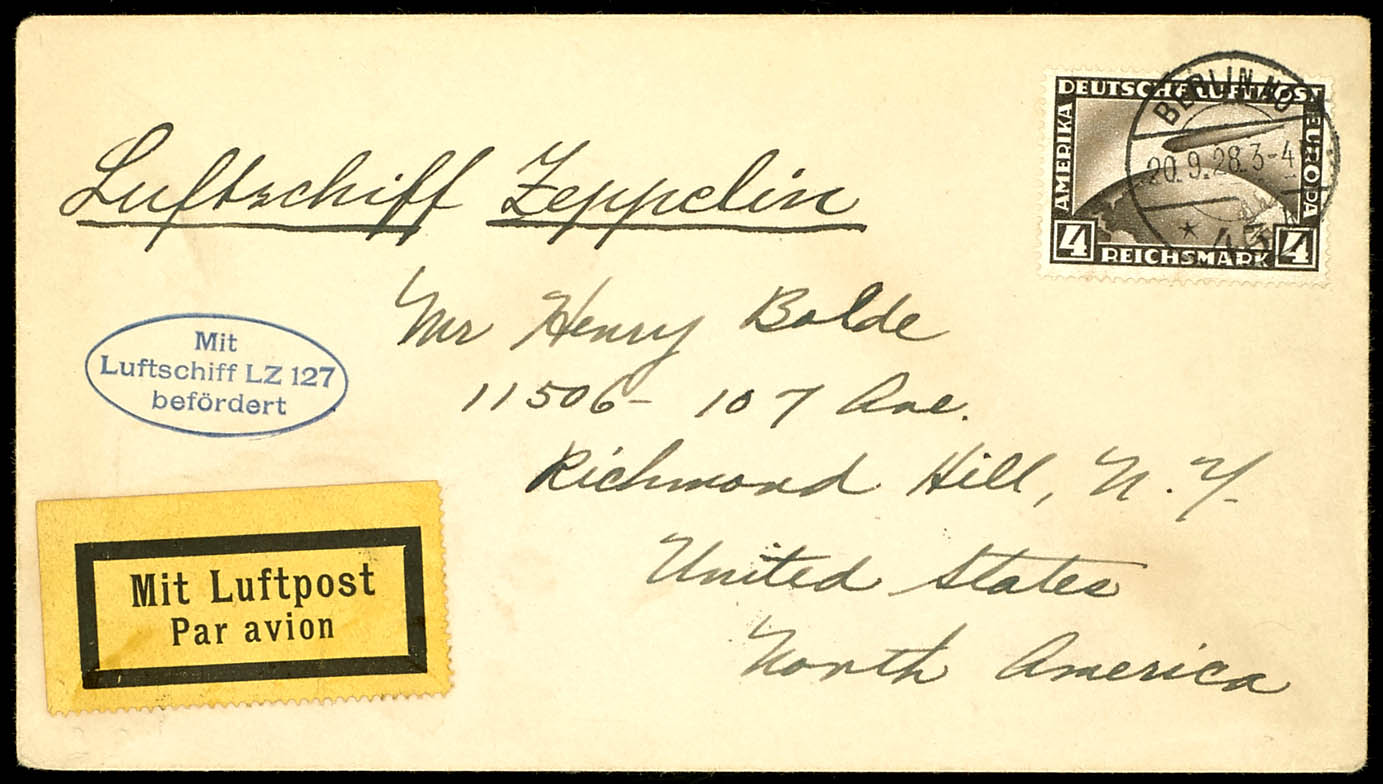 DEUTSCHE LUFTPOST
AMERIKA
EUROPA
4 REICHSMARK 4
BERLIN NO
20.9.28.3-4
* 43
Luftschiff Zeppelin
Mr Henry Bolde
11506- 107 Ave.
Richmond Hill, N.Y.
United States
North America
Mit
Luftschiff LZ 127
befördert
Mit Luftpost
Par avion